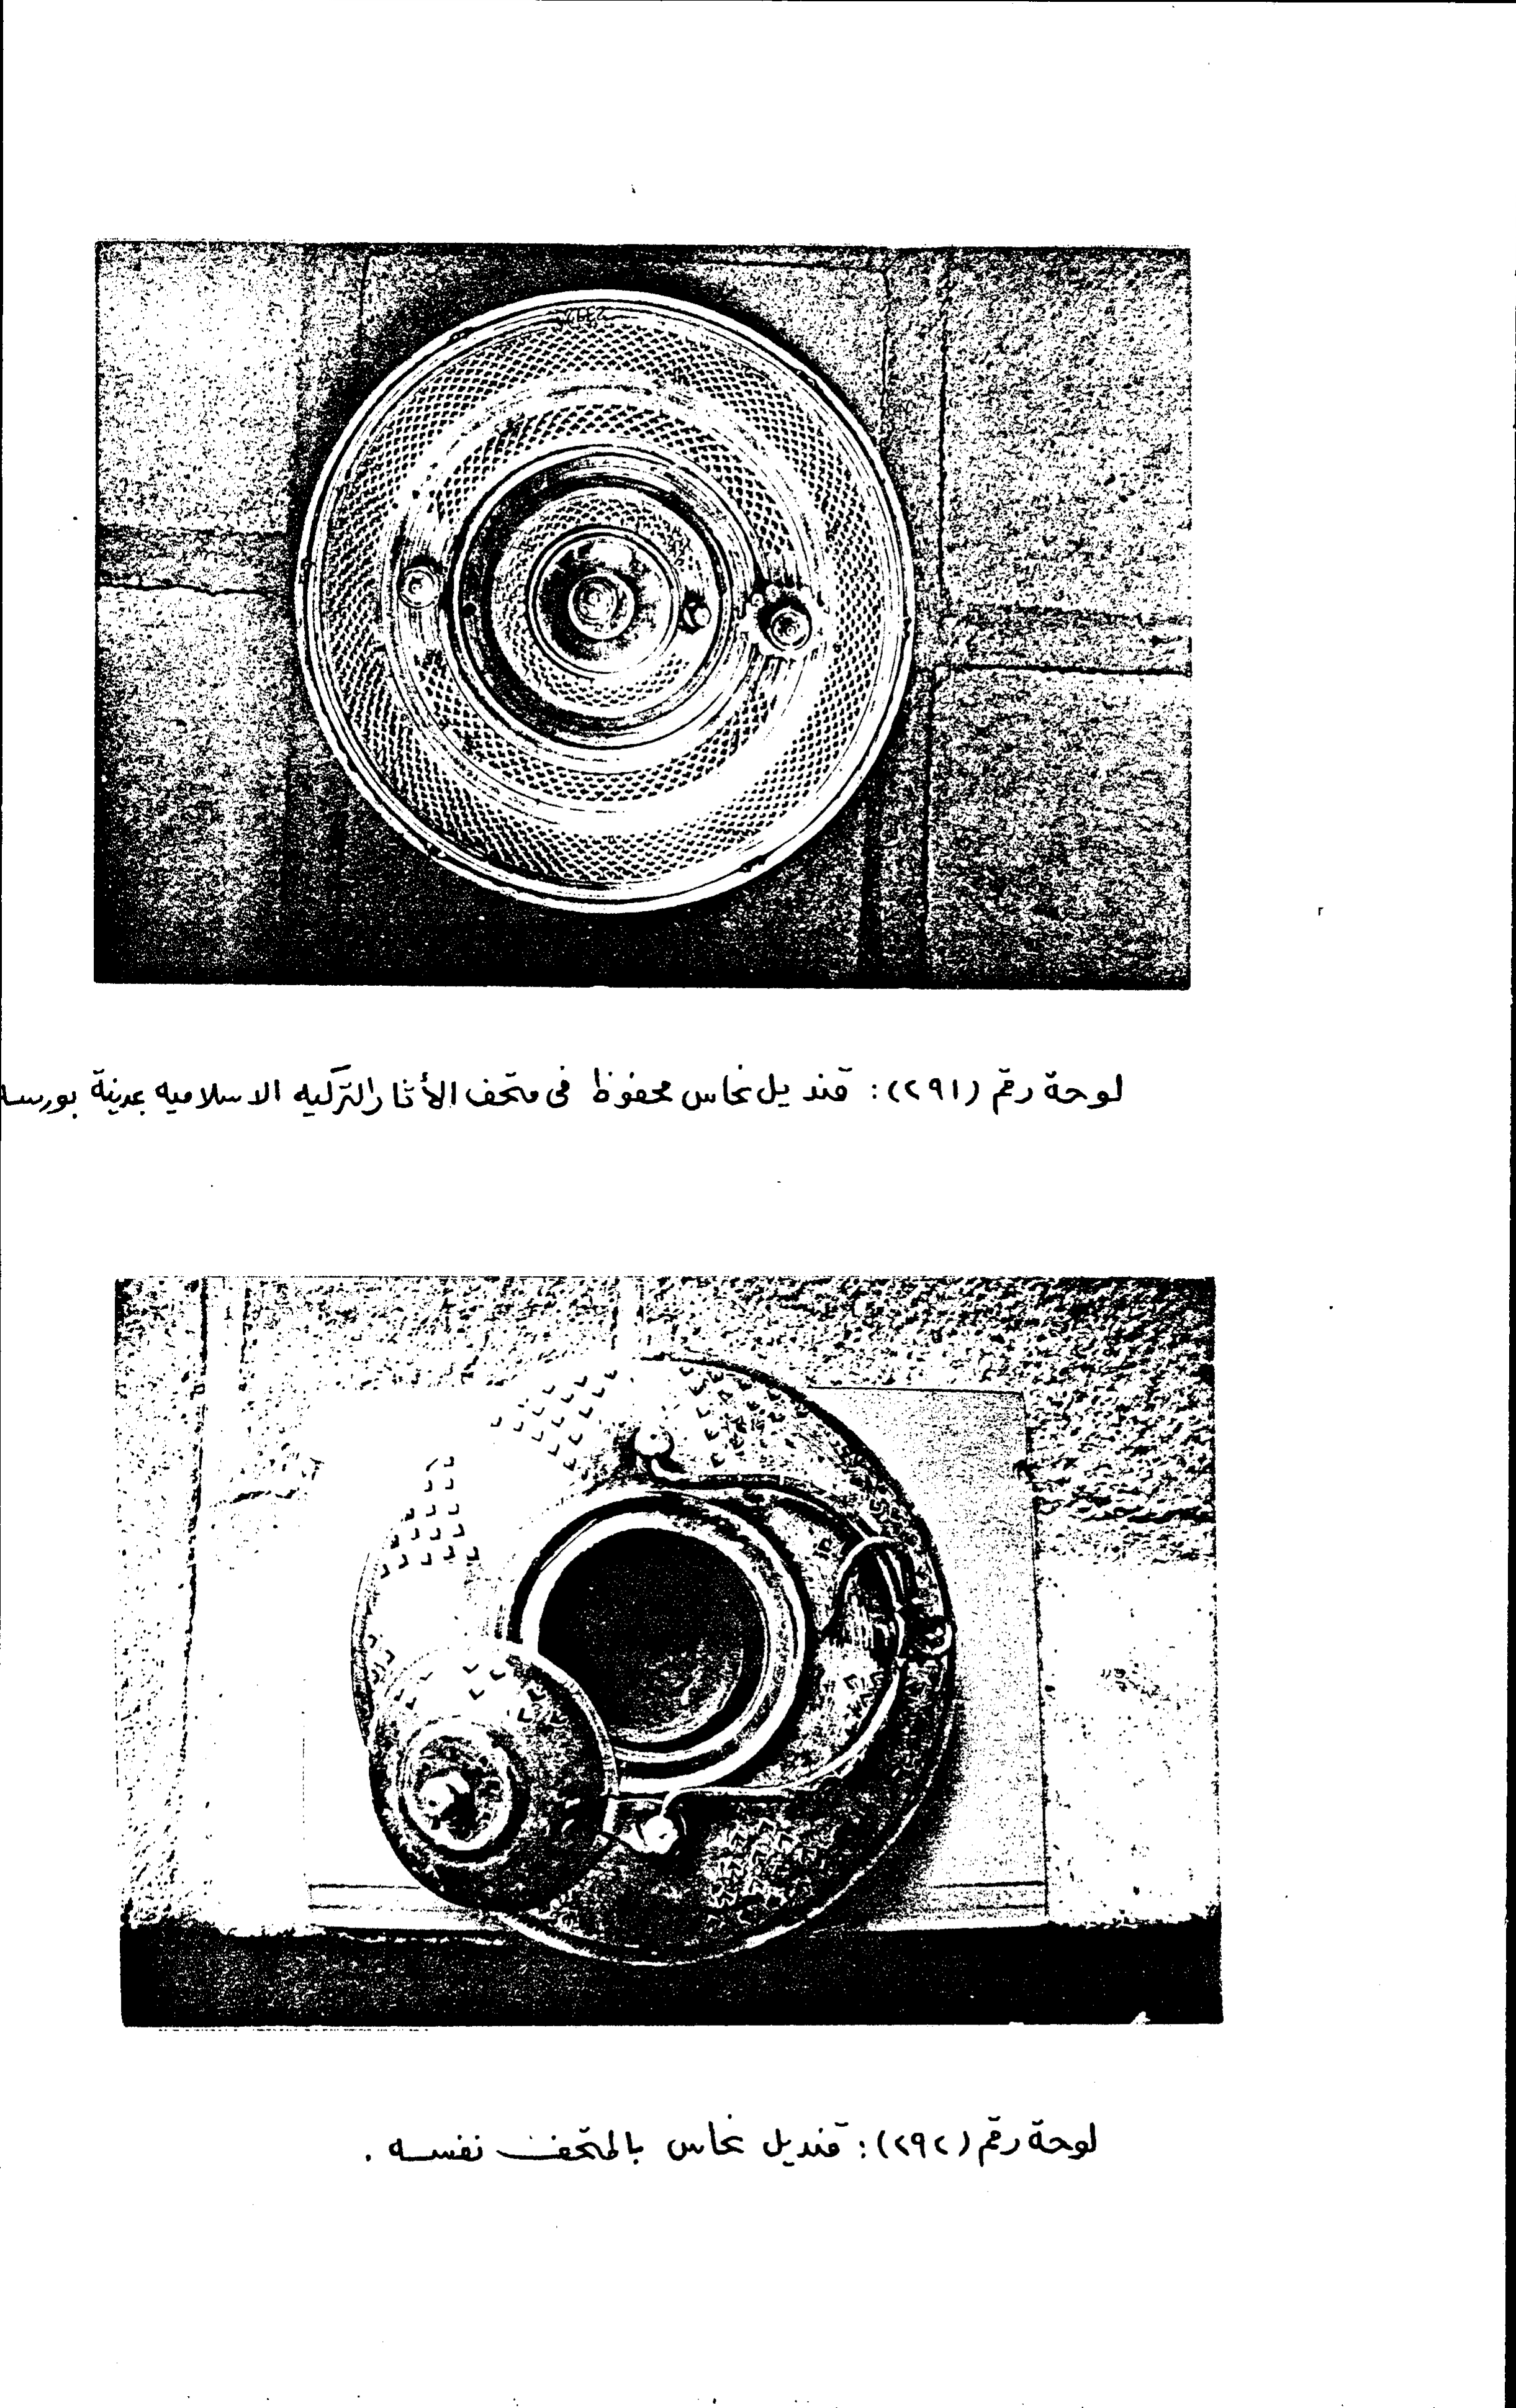 لوحة رقم (٢٩١): قنديل نحاس محفوظ فى متحف الأثار التركيه الاسلاميه بمدينة بورسه
لوحة رقم (٢٩٢): قنديل نحاس بالمتحف نفسه .